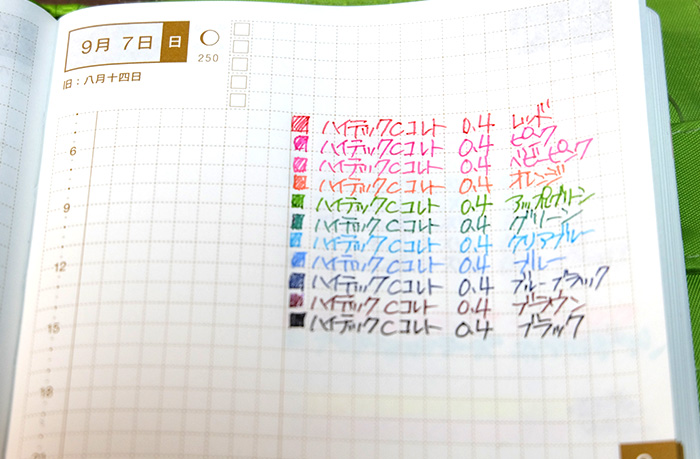 9月 7日 日
250
旧:八月十四日
ハイテックCコレト 0.4 レッド
ハイテックCコレト 0.4 ピンク
6
ハイテックCコレト 0.4 ベビーピンク
ハイテックCコレト 0.4 オレンジ
ハイテックCコレト 0.4 アップルグリーン
9
ハイテックCコレト 0.4 グリーン
ハイテックCコレト 0.4 クリアブルー
ハイテックCコレト 0.4 ブルー
12
ハイテックCコレト 0.4 ブルーブラック
ハイテックCコレト 0.4 ブラウン
ハイテックCコレト 0.4 ブラック
15
18